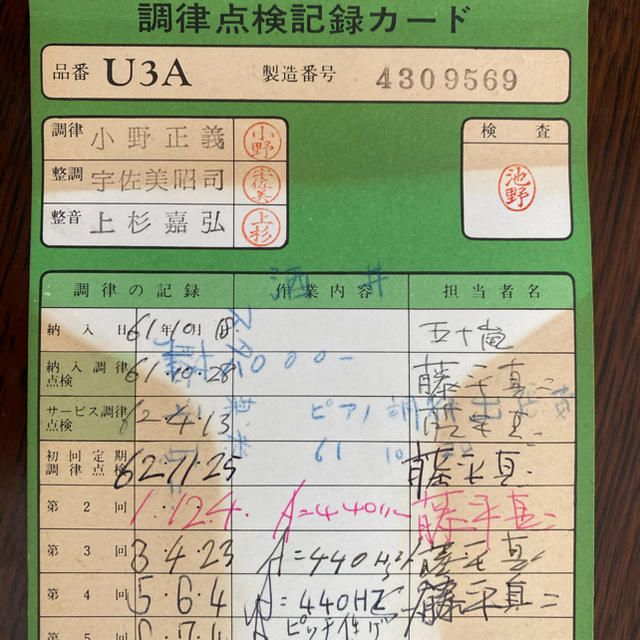 調律点検記録カード
品番 U3A 製造番号 4309569
調律 小野正義 小野
整調 宇佐美昭司
整音 上杉嘉弘 上杉
検査
池野
酒井
調律の記録 作業内容 担当者名
納入日 61年10月18日 五十嵐
納入調律点検 61・10・28 藤平真二
サービス調律点検 62・4・13
ピアノ調
61 10
初回定期調律点検 62・11・25 藤平真二
第2回 1・12・4・ A=440Hz 藤平真二
第3回 3・4・23 A=440Hz 藤平真二
第4回 5・6・4 A=440HZ 藤平真二
第5 6・7・4 ピッチ